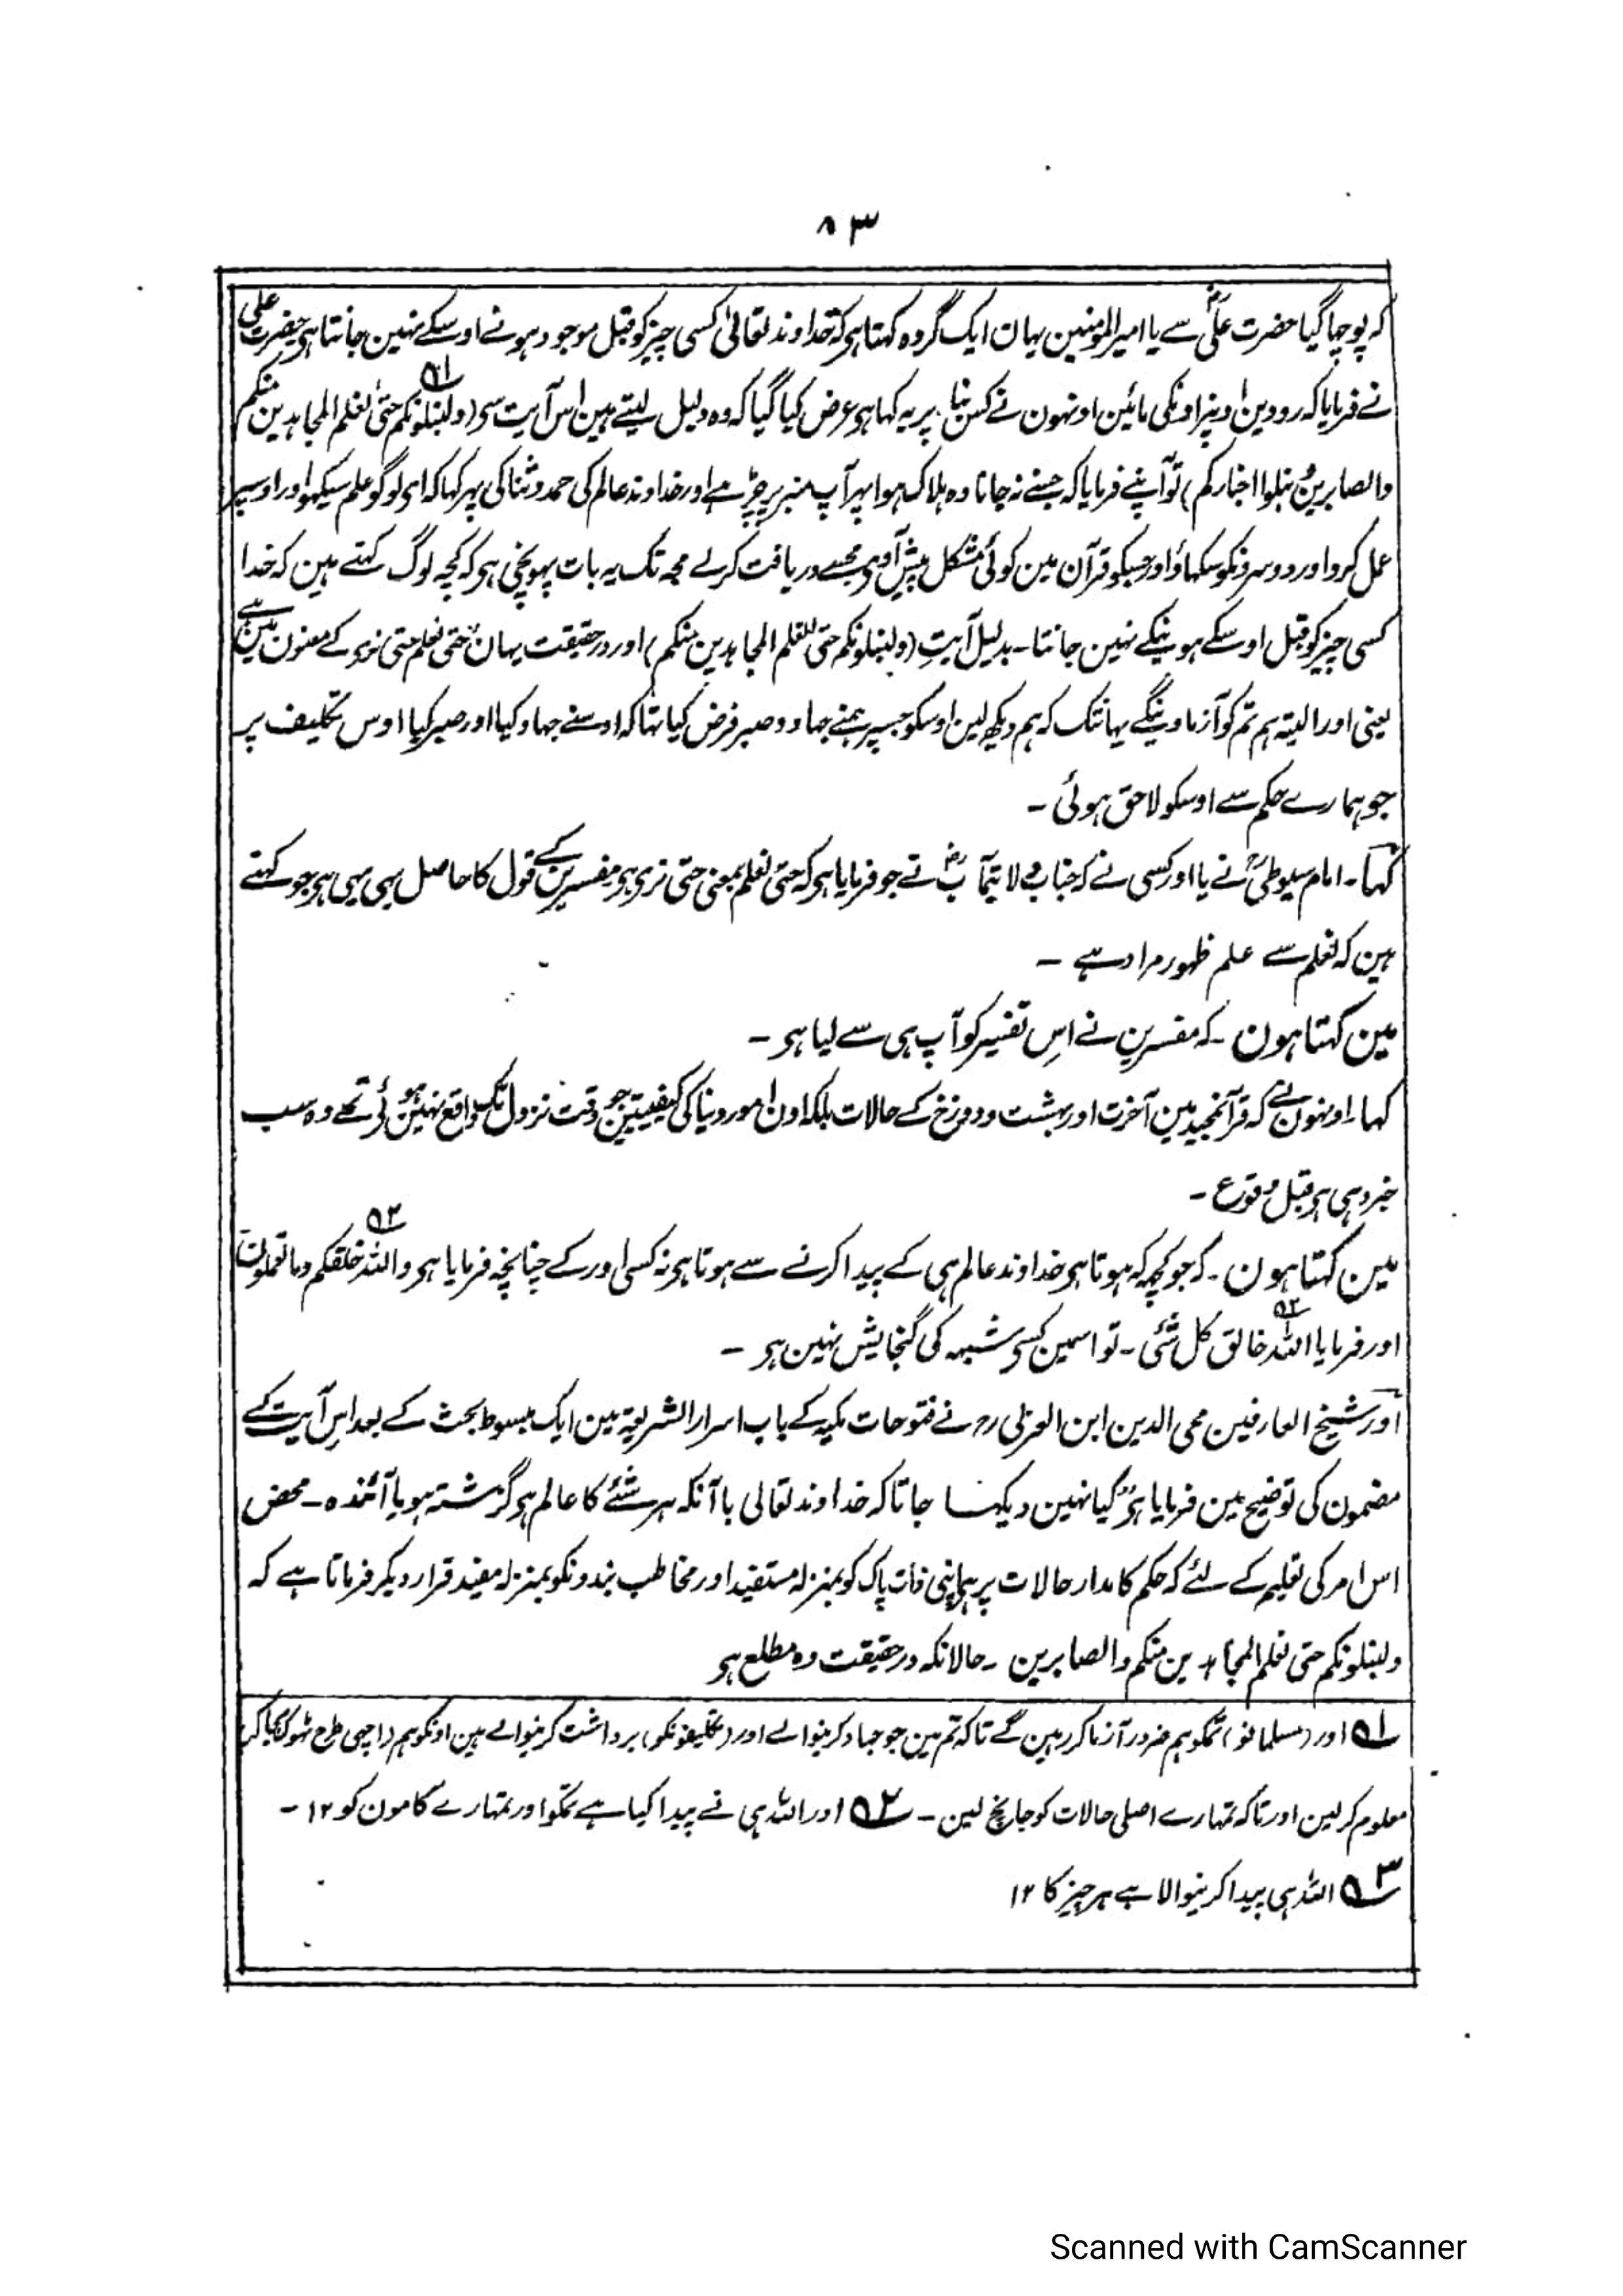 ۸۳
کہ پوچھا گیا حضرت علیؓ سے یا امیر المومنین یہان ایک گروہ کہتا ہی کہ خداوند تعالیٰ کسی چیز کو قبل موجود ہونے اوسکے نہین جانتا ہی حضرت علی
نے فرمایا کہ رووین اونپر اونکی مائین اونہون نے کس بنا پر یہ کہا ہی عرض کیا گیا کہ وہ دلیل لیتے ہین اس آیت سی (ولنبلونکم حتیٰ نعلم المجاہدین منکم ۵۱
والصابرین ونبلوا اخبارکم) تو آپنے فرمایا کہ جسنے نہ جانا وہ ہلاک ہوا پہر آپ منبر پر چڑہے اور خداوند عالم کی حمد و ثنا کی پہر کہا کہ ای لوگو علم سیکہو اور اوسپر
عمل کرو اور دوسرونکو سکہاؤ اور جسکو قرآن مین کوئی مشکل پیش آوی مجہسے دریافت کرلے مجہ تک یہ بات پہونچی ہی کہ کچہ لوگ کہتے ہین کہ خدا
کسی چیز کو قبل اوسکے ہونیکے نہین جانتا ۔ بدلیل آیتِ (ولنبلونکم حتیٰ نعلم المجاہدین منکم) اور درحقیقت یہان حتیٰ نعلم حتی نری کے معنون مین ہے
یعنی اور البتہ ہم تم کو آزماوینگے یہانتک کہ ہم دیکھ لین اوسکو جسپر ہمنے جہاد و صبر فرض کیا تہا کہ اوسنے جہاد کیا اور صبر کیا اوس تکلیف پر
جو ہمارے حکم سے اوسکو لاحق ہوئی ۔
کہا ۔ امام سیوطیؒ نے یا اور کسی نے کہ جناب ولایتمآبؓ نے جو فرمایا ہی کہ حتیٰ نعلم بمعنی حتیٰ نری ہی مفسرین کے قول کا حاصل بہی یہی ہی جو کہتے
ہین کہ نعلم سے علم ظہور مراد ہے ۔
مین کہتا ہون ۔ کہ مفسرین نے اس تفسیر کو آپ ہی سے لیا ہی ۔
کہا ۔ اونہون نے کہ قرآنمجید مین آخرت اور بہشت و دوزخ کے حالات بلکہ اون امور دنیا کی کیفیتین جو وقت نزول تک واقع نہین ہوئی تھے وہ سب
خبر دی ہی قبل وقوع ۔
مین کہتا ہون ۔ کہ جو کچہ کہ ہوتا ہی خداوند عالم ہی کے پیدا کرنے سے ہوتا ہی نہ کسی اور کے چنانچہ فرمایا ہی واللہ خلقکم وما تعملون ۵۲
اور فرمایا اللہ خالق کل شئی ۵۳ ۔ تو اسمین کسی شبہہ کی گنجایش نہین ہی ۔
اور شیخ العارفین محی الدین ابن العربی رح نے فتوحات مکیہ کے باب اسرار الشریعۃ مین ایک مبسوط بحث کے بعد اس آیت کے
مضمون کی توضیح مین فرمایا ہی کیا نہین دیکہا جاتا کہ خداوند تعالی باآنکہ ہر شئے کا عالم ہی گزشتہ ہو یا آئندہ ۔ محض
اس امر کی تعلیم کے لئے کہ حکم کا مدار حالات پر ہی اپنی ذات پاک کو بمنزلہ مستفید اور مخاطب بندونکو بمنزلہ مفید قرار دیکر فرماتا ہے کہ
ولنبلونکم حتی نعلم المجاہدین منکم والصابرین ۔ حالانکہ درحقیقت وہ مطلع ہی
۵۱ اور (مسلمانو) تمکو ہم ضرور آزما کر رہین گے تاکہ تم مین جو جہاد کرنیوالے اور (تکلیفونکو) برداشت کرنیوالے ہین اونکو ہم (اچہی طرح ٹہوک بجا کر)
معلوم کرلین اور تاکہ تمہارے اصلی حالات کو جانچ لین ۔ ۵۲ اور اللہ ہی نے پیدا کیا ہے تمکو اور تمہارے کامون کو ۱۲ ۔
۵۳ اللہ ہی پیدا کرنیوالا ہے ہر چیز کا ۱۲
Scanned with CamScanner